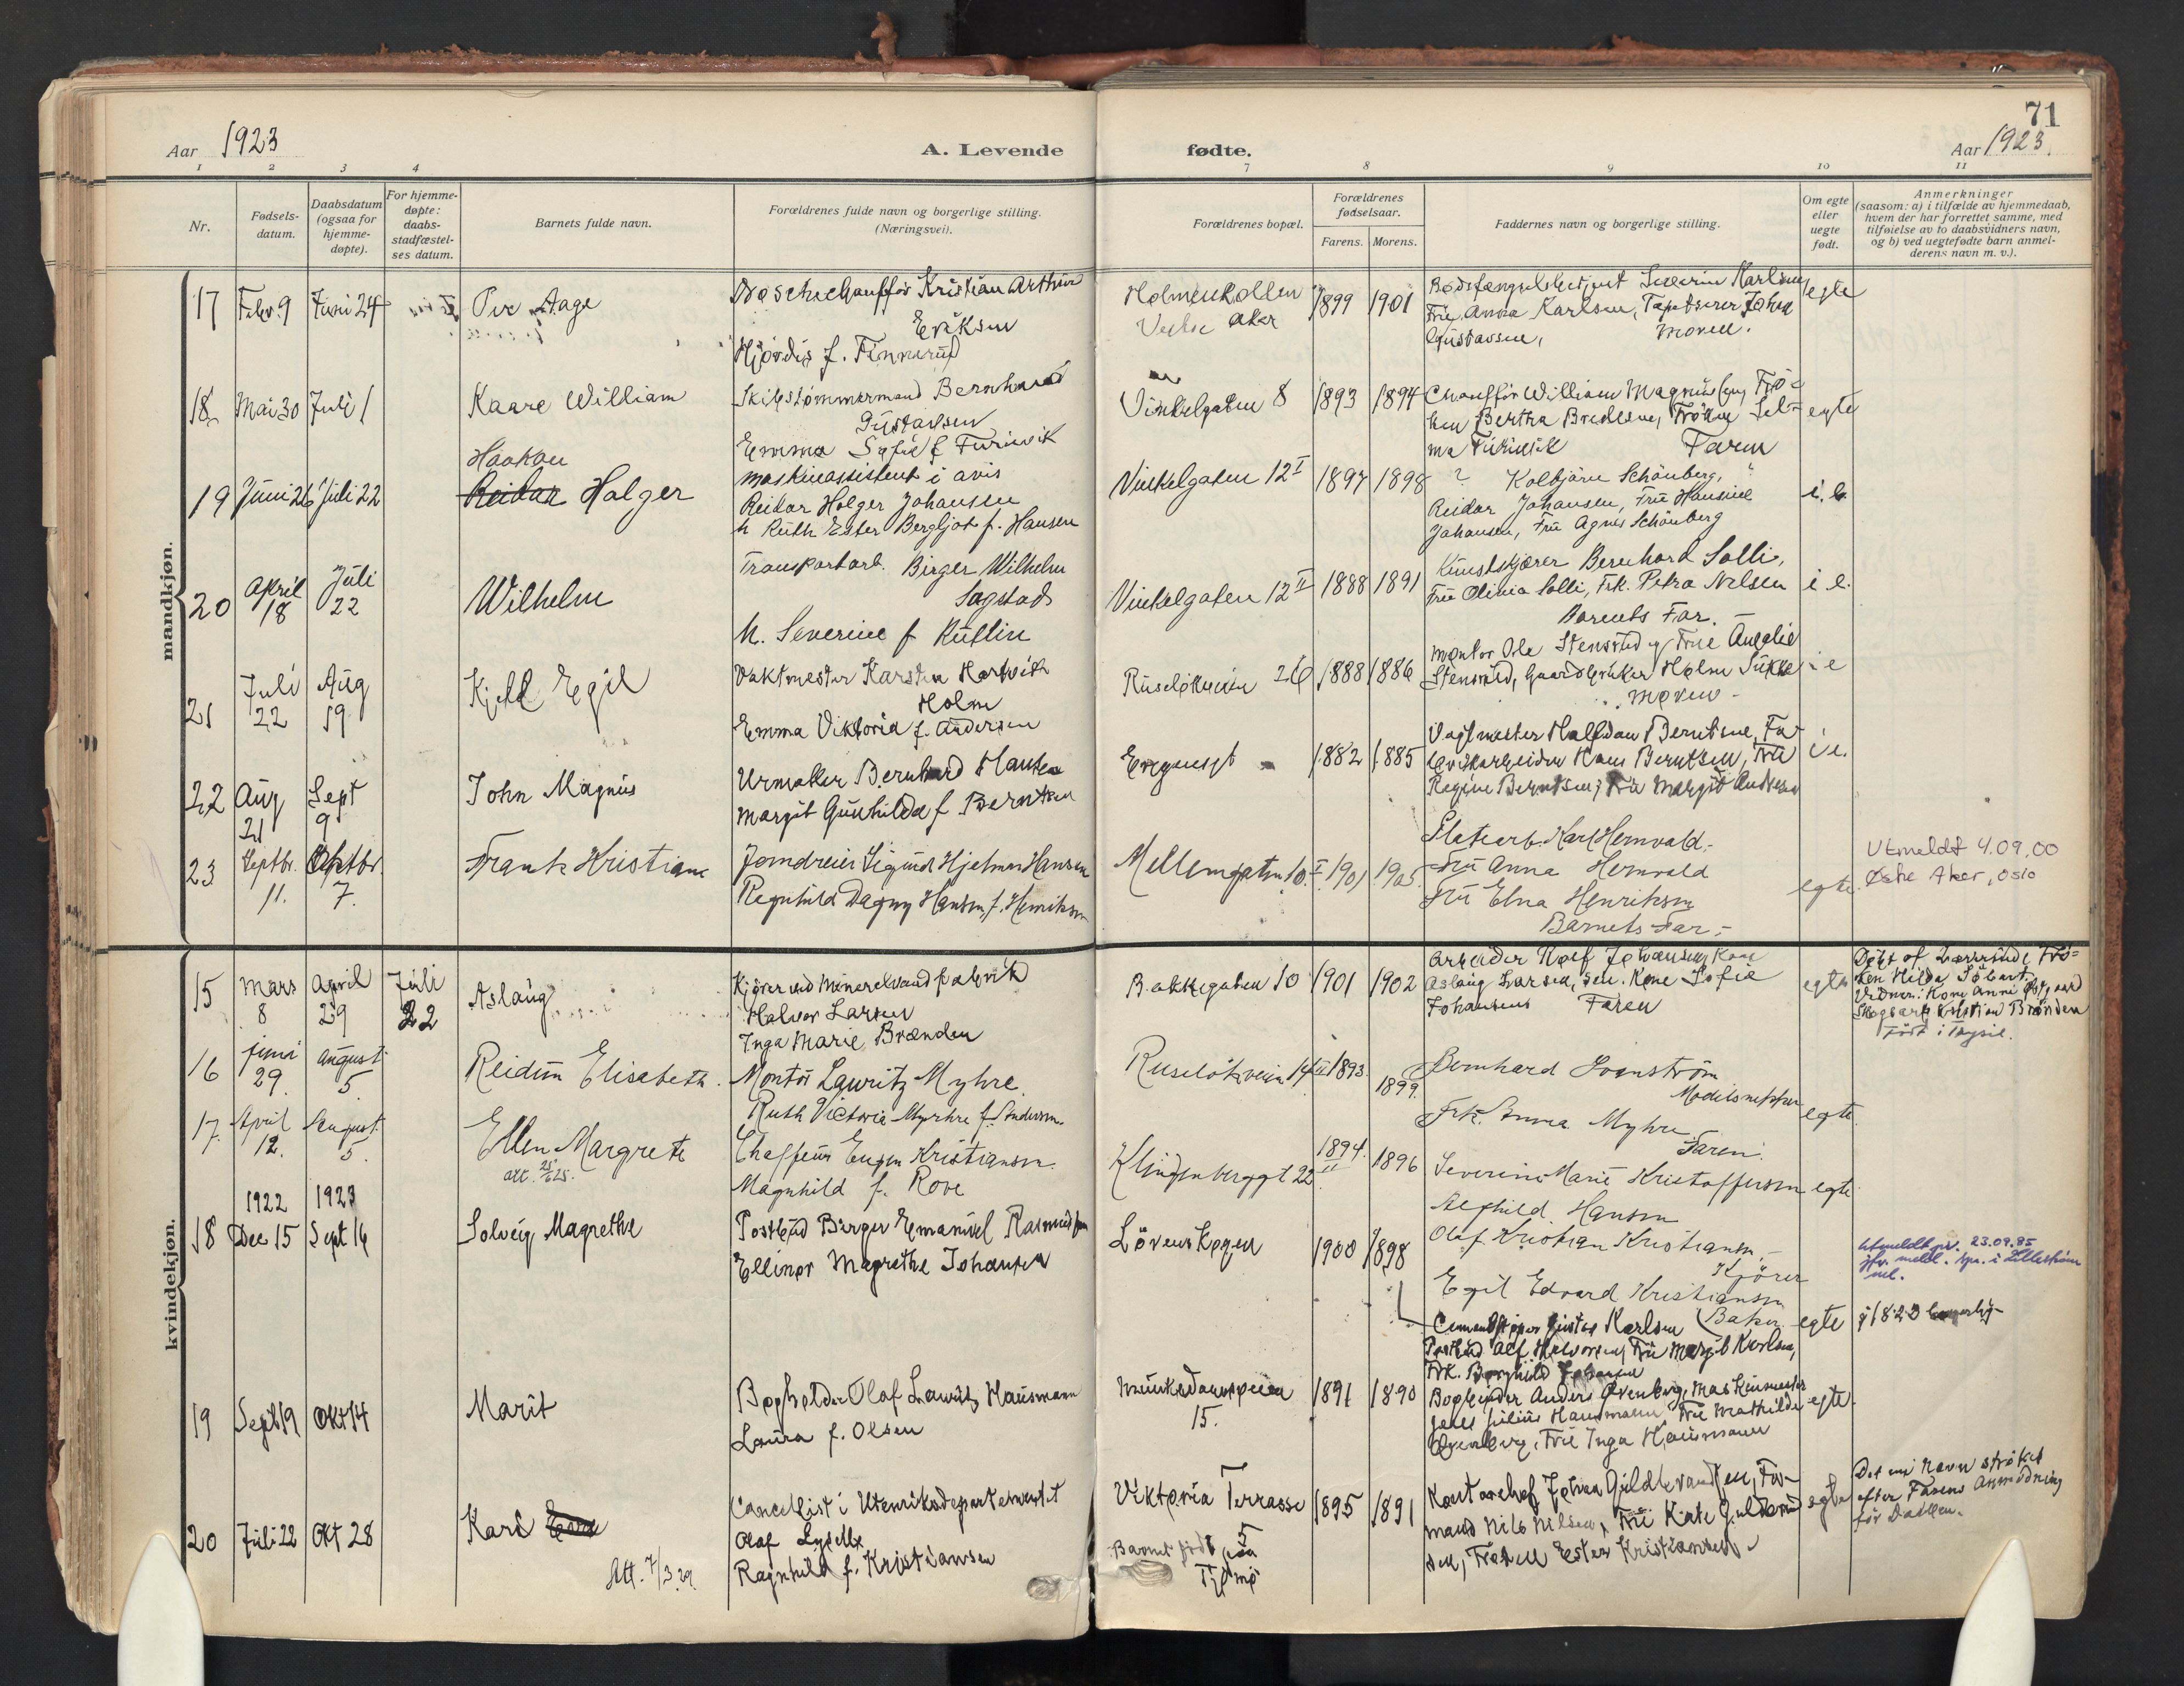 71
Aar 1923
A. Levende
fødte.
Aar 1923.
1 2 3 4 7 8 9 10 11
Nr.
Fødsels-
datum.
Daabsdatum
(ogsaa for
hjemme-
døpte).
For hjemme-
døpte:
daabs-
stadfæstel-
ses datum.
Barnets fulde navn.
Forældrenes fulde navn og borgerlige stilling.
(Næringsvei).
Forældrenes bopæl.
Forældrenes
fødselsaar.
Farens. Morens.
Faddernes navn og borgerlige stilling.
Om egte
eller
uegte
født.
Anmerkninger
(saasom: a) i tilfælde av hjemmedaab,
hvem der har forrettet samme, med
tilføielse av to daabsvidners navn,
og b) ved uegtefødte barn anmel-
derens navn m. v.).
mandkjøn.
17 Febr. 9 Juni 24
Per Aage
Kristian Arthur
Eriksen
Hjördis f. Finnerud
Holmenkollen
Aker
1899 1901
Severin Karlsen
Fru Anna Karlsen, Tapetserer Johan
Gustavsen, Moren.
egte
18 Mai 30 Juli 1
Kaare William
Skibstömmermand Bernhard
Gustavsen
Emma Sofie f Furuvik
Vinkelgaten 8
1893 1894
Chaufför William Magnussen, Frö-
ken Bertha Bredesen, Fröken Sel-
ma Furuvik Faren
egte
19 Juni 26 Juli 22
Haakon
Reidar Holger
Maskinassistent i avis
Reidar Holger Johansen
h Ruth Ester Bergljot f. Hansen
Vinkelgaten 12 I
1897 1898
? Kolbjörn Schönberg,
Reidar Johansen, Fru Hansine
Johansen, Fru Agnes Schönberg
i. e.
20 April 18 Juli 22
Wilhelm
Transportarb. Birger Wilhelm
Sagstad
h. Severine f Rutlin
Vinkelgaten 12 II
1888 1891
Kunstskjærer Bernhard Solli,
Fru Olivia Solli, Frk. Petra Nelsen
Barnets Far. —
i e.
21 Juli 22 Aug 19
Kjell Egil
Vaktmester Karsten Hartvik
Holm
Emma Viktoria f. Andersen
Ruselökveien 26
1888 1886
Montör Ole Stensrud og Frue Angelie
Stensrud, Gaardbruker Holm
Moren -
i e
22 Aug 21 Sept 9
John Magnus
Urmaker Bernhard Hansen
Margit Gunhilda f Berntsen
Enggt
1882 1885
Vagtmester Halfdan Berntsen, Fa-
brikarbeider Hans Berntsen, Fru
Regine Berntsen, Fru Margit Andresen
i e.
23 Septbr. 11. Oktbr. 7.
Frank Kristian
Jerndreier Sigurd Hjelmar Hansen
Regnhild Dagny Hansen, f. Henriksen
Mellemgaten 10. I
1901 1905.
Karl Hernvald.-
Fru Anna Hernvald
Fru Elna Henriksen
Barnets Far.-
egte.
Utmeldt 4.09.00
Østre Aker, Oslo
kvindekjøn.
15 Mars 8 April 29 Juli 22
Aslaug
Kjörer ved Mineralvandfabrik
Halvor Larsen
Inga Marie Brænden
Bakkegaten 10
1901 1902
Arbeider Rolf Johansen, Kone
Aslaug Larsen, Kone Sofie
Johansens Faren
egte
Döbt af Lærerinde Frö-
ken Hilda
Vidner: Kone Anne Östgaard
Skogsarb Kristian Brænden
Född i Trysil.
16 juni 29. august 5.
Reidun Elisabeth.
Montör Lauritz Myhre.
Ruth Victoria Myrhre f. Andersen.
Ruselökveien 14 II
1893. 1899.
Bernhard Svenström
Modelsnekker
Frk. Anna Myhre
Faren.
egte.
17. April 12. August 5.
Ellen Margrete
att.
Chaffeur Eugen Kristiansen.
Magnhild f. Rove
Klingenberggt 22 II
1894. 1896
Severine Marie Kristoffersen
Alfhild Hansen
Olaf Kristian Kristiansen.-
Kjörer
Egil Edvard Kristiansen
Baker
egte.
18 1922 Dec 15 1923 Sept 16
Solveig Magrethe
Postbud Birger Emanuel Rasmussen
Ellinor Magrethe Johansen
Lövenskogen
1900 1898
Gustav Karlsen
Postbud Alf Halvorsen, Fru Margit Karlsen,
Frk. Borghild Johansen
egte
Utmeldt pr. 23.09.85
jfr. meld. spr. i Lilleström
19 Sept 19 Okt 14
Marit
Bogholder Olaf Lauritz Hausmann
Laura f. Olsen
Munkedamsveien
15.
1891 1890
Bogbinder Anders Ovenberg, Maskinmester
Jens Julius Hausmann, Fru Mathilde
Ovenberg, Fru Inga Hausmann
egte.
20 Juli 22 Okt 28
Kari
Att. 7/3 29.
Cancellist i Utenriksdepartementet
Olaf
Ragnhild f. Kristiansen
Viktoria Terrasse
5
Barnet födt paa
Tjömö
1895 1891
Kontorchef Johan Guldbrandsen, For-
mand Nils Nilsen, Fru Kate Guldbrand
sen, Fröken Ester Kristiansen
egte
Det ene Navn ströket
efter Farens Anmodning
för Daaben.